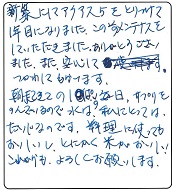 新築にてアクアス5をとりつけて
1年目になりました。このたびメンテナンスを
していただきました。ありがとうござい
ました。また、安心して
つかわせてもらいます。
朝起きての1ぱい毎日、
のんでいるので水は、私にとっては
たいせつなのです。料理に使っても
おいしい、とにかく米がおいしい!
これからも、よろしくお願いします!